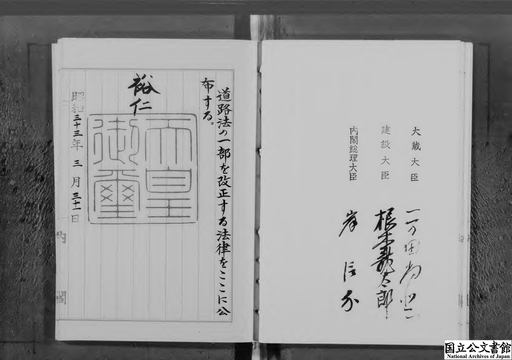 道路法の一部を改正する法律をここに公
布する。
裕仁
天皇
御璽
昭和三十三年三月三十一日
大蔵大臣 一万田尚登
建設大臣 根本龍太郎
内閣総理大臣 岸信介
国立公文書館
National Archives of Japan